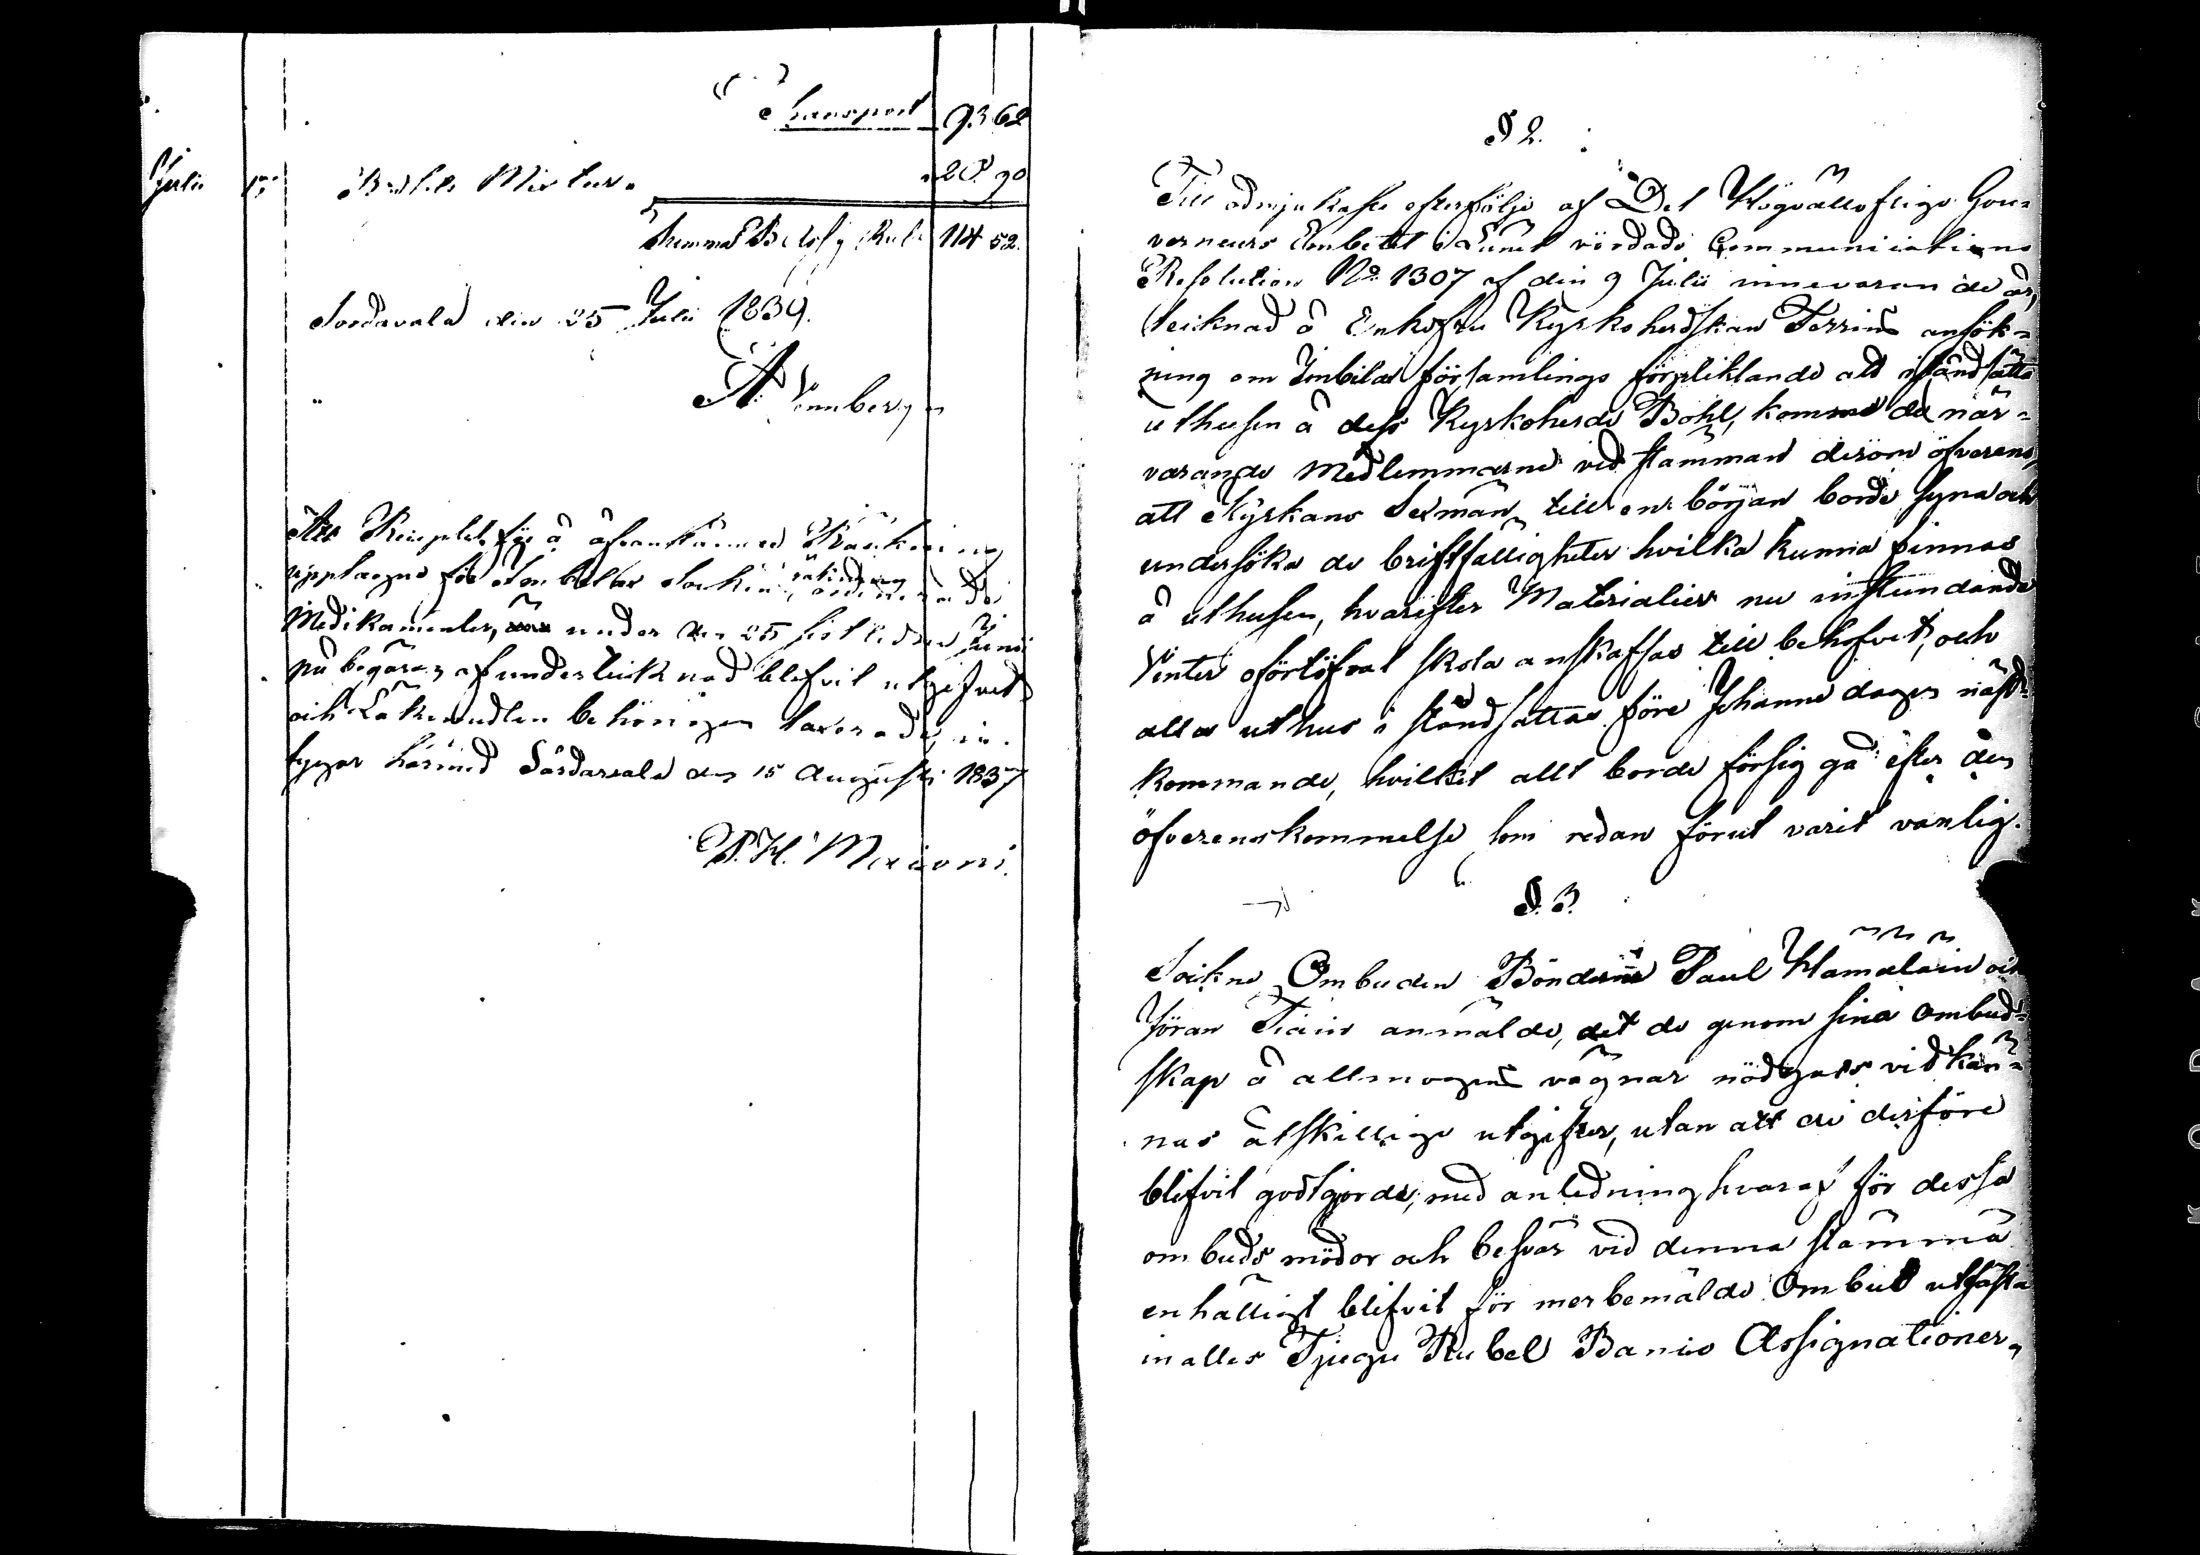 Transport 93 62
Julii 17 Mixtur 20 90
Summa B. Ass. Rub. 114 52.
Sordavala den 25 Julii 1839.
A. Lönnberg
Att Recepter för å ofvanstående Räkning
upptagne för Imbilax Sokne
Medikamenter, under den 25 sistledne Junii
på begäran af undertecknad blefvit utgifvet
och Läkemedlen behörigen taxerade, in-
tygar härmed Sordavala den 15 Augusti 1837
§ 2.
Till ödmjukaste efterfölje af Det Högvällofliga Gou-
verneurs Embetet i Länet vördade Communications
Resolution No 1307 af den 9 Julii innevarande år,
teiknad å Enkefru Kyrkoherdskan Ferrins ansök-
ning om Imbilax församlings förpliktande att iståndsätta
uthusen å dess Kyrkoherde Bohl, kommo de när-
varande Medlemmarne vid stämman derom öfverens,
att Kyrkans Sexmän till en början borde syna och
undersöka de bristfälligheter hvilka kunna finnas
å uthusen, hvarefter Materialier nu instundande
Vinter oförtöfvat skola anskaffas till behofvet, och
alla uthus i ståndsättas före Johanne dagen näst-
kommande, hvilket allt borde försig gå efter den
öfverenskommelse som redan förut varit vanlig.
§. 3.
Sockne Ombuden Bönderne Paul Hämäläin och
Jöran Tiain anmälde, det de genom sina ombud-
skap å allmogens vägnar nödgats vidkän-
nas åtskillige utgifter, utan att de derföre
blifvit godtgjorde; med anledning hvaraf för dessa
ombuds mödor och besvär vid denna stämma
enhälligt blifvit för merbemälde Ombud utfästa
inalles Tjugu Rubel Banco Assignationer,